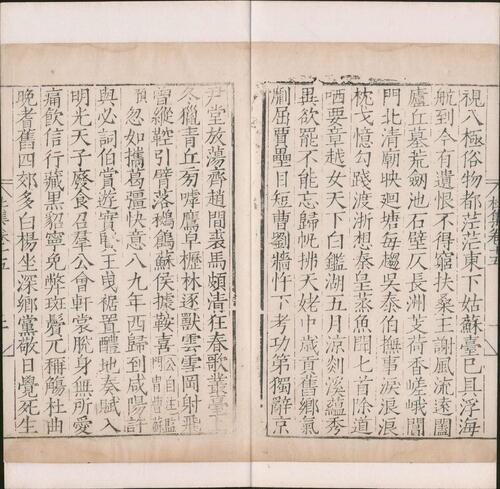 視八極俗物都茫茫東下姑蘇臺已具浮海
航到今有遺恨不得窮扶桑王謝風流遠闔
廬丘墓荒劒池石壁仄長洲芰荷香嵯峨閶
門北清廟映迴塘每趨吳泰伯撫事淚浪浪
枕戈憶勾踐渡浙想秦皇蒸魚聞匕首除道
哂要章越女天下白鑑湖五月涼剡溪蘊秀
異欲罷不能忘歸帆拂天姥中歲貢舊鄉氣
劘屈賈壘目短曹劉牆忤下考功第獨辭京
尹堂放蕩齊趙間裘馬頗清狂春歌叢臺上
冬獵青丘旁嘑鷹皁櫪林逐獸雲雪岡射飛
曾縱鞚引臂落鶖鶬蘇侯據鞍喜公自注監門胄曹蘇
預忽如攜葛彊快意八九年西歸到咸陽許
與必詞伯賞遊實賢王曳裾置醴地奏賦入
明光天子廢食召羣公會軒裳脫身無所愛
痛飲信行藏黑貂寧免弊斑鬢兀稱觴杜曲
晚耆舊四郊多白楊坐深鄉黨敬日覺死生